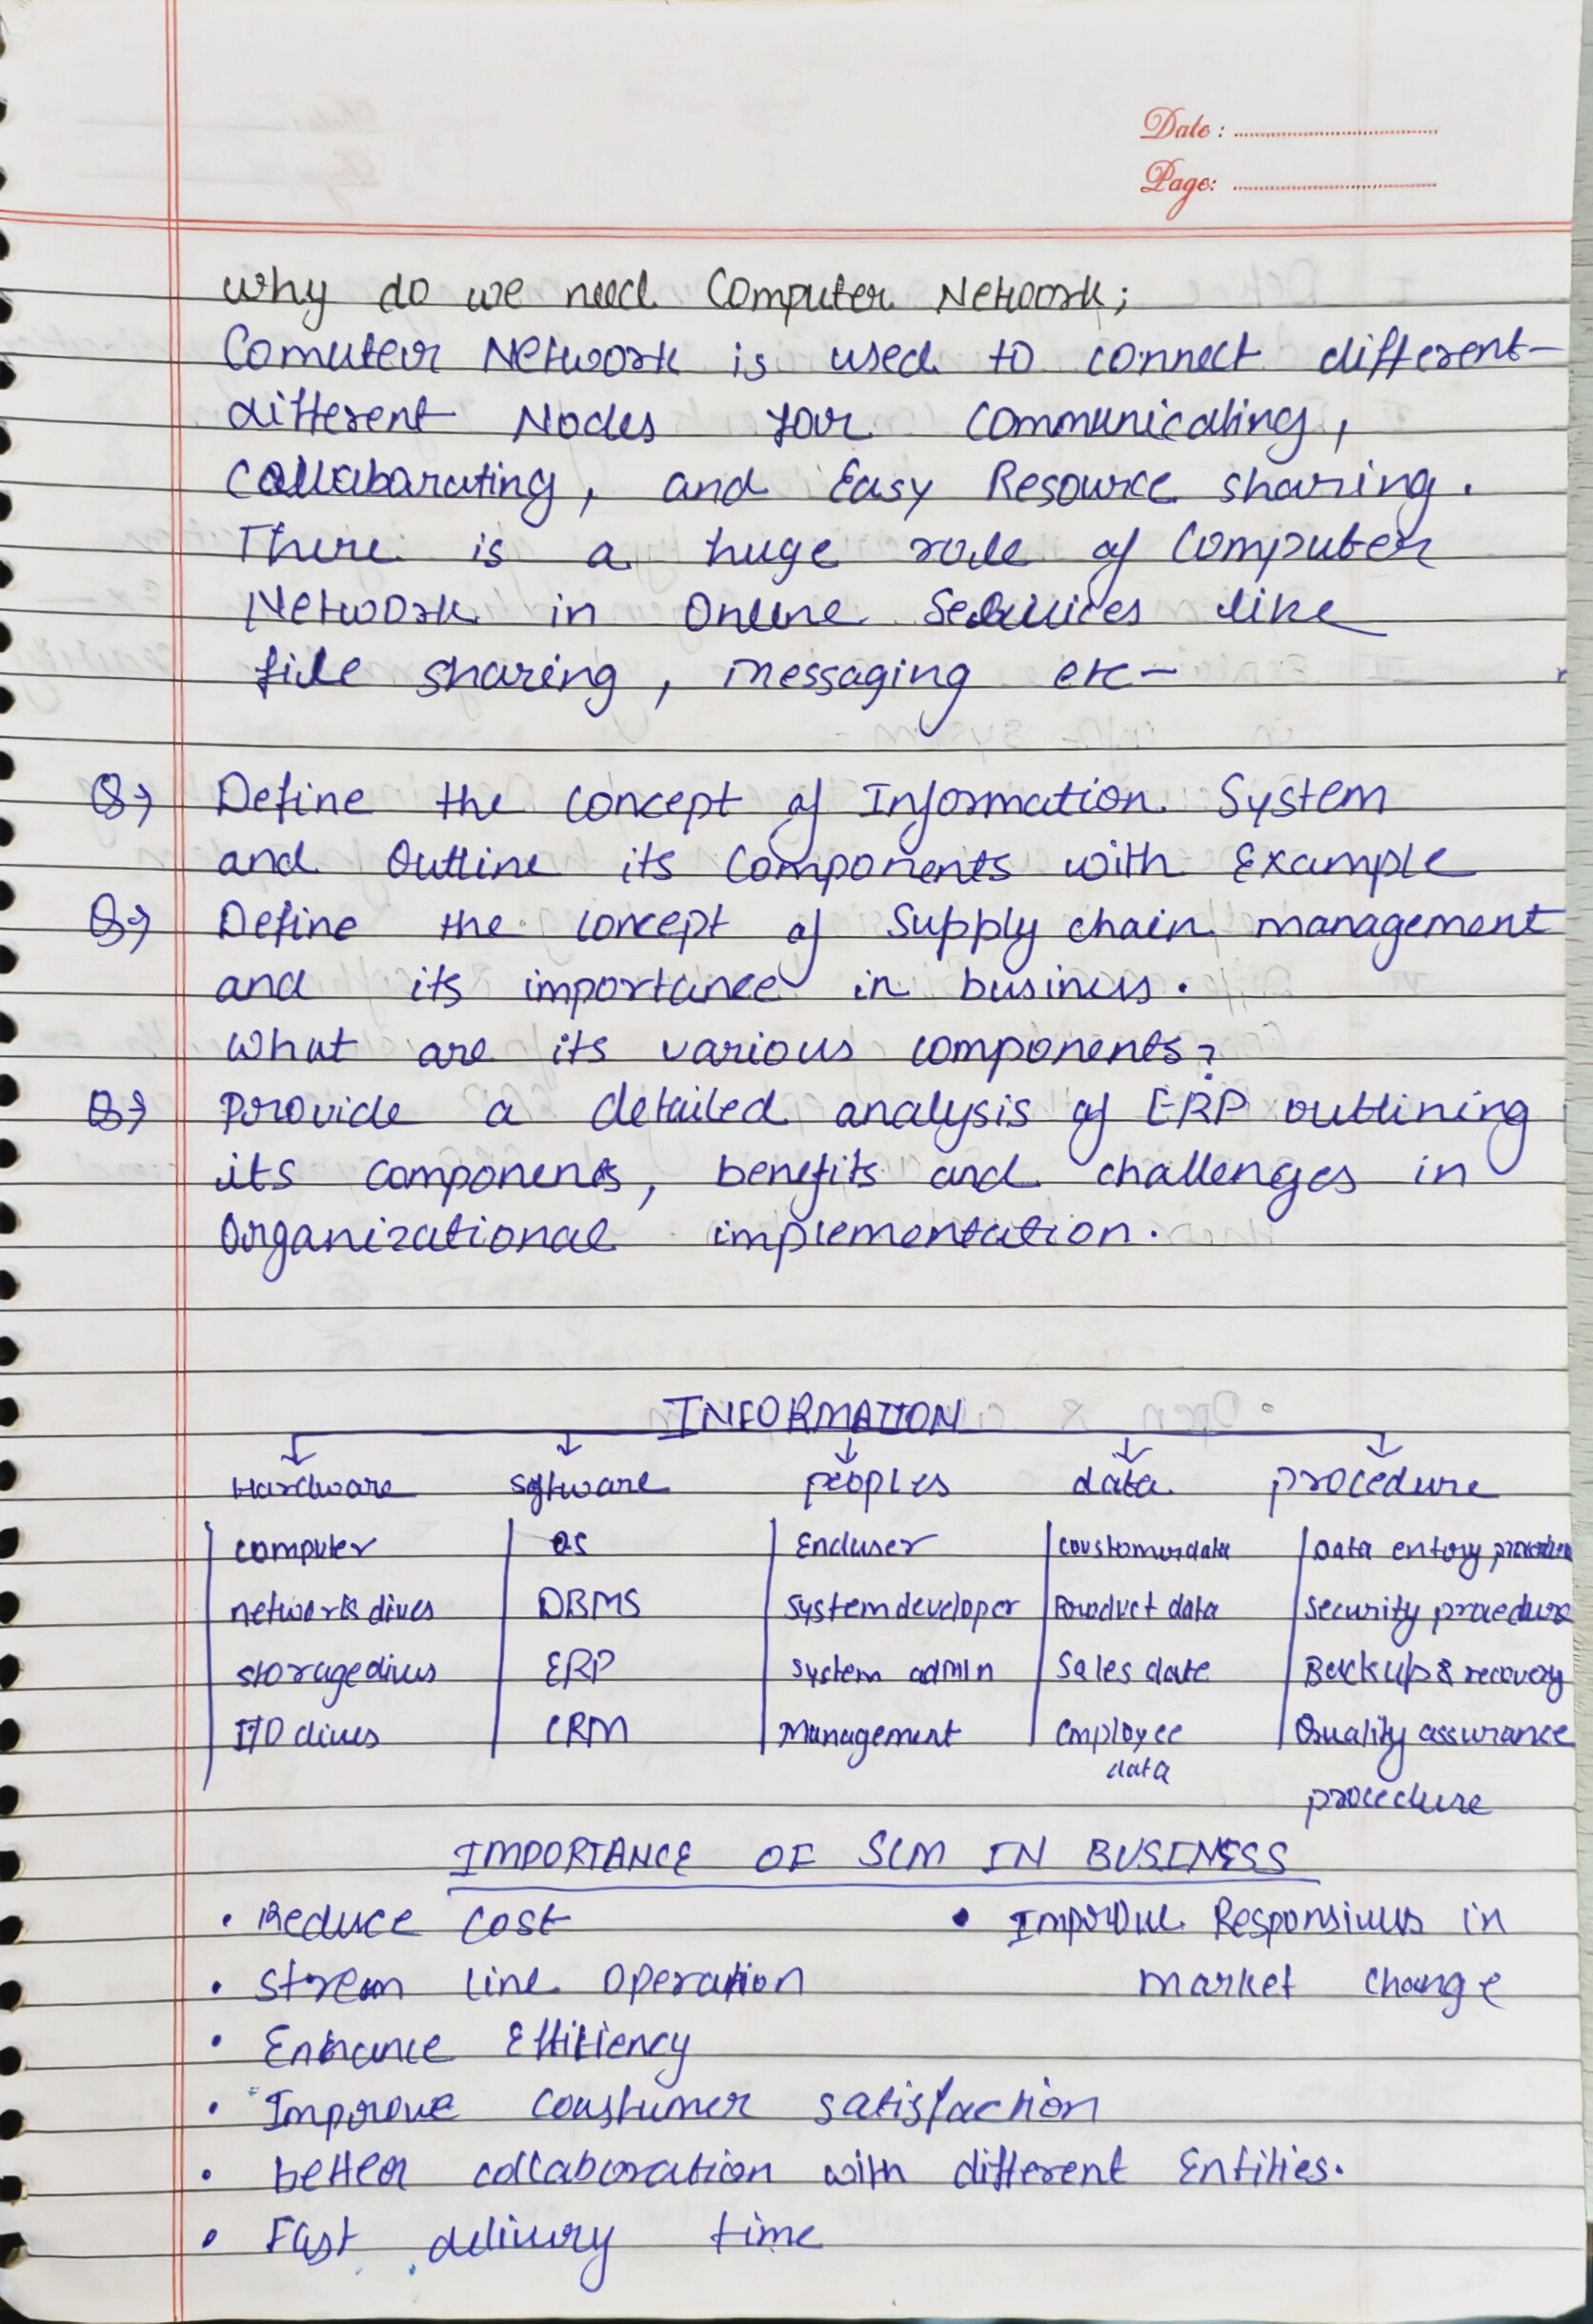 Date :
Page:
Why do we need Computer Network;
Comuter Network is used to connect different-
different Nodes for Communicating,
Collabarating, and Easy Resource sharing.
There is a huge role of Computer
Network in Online Services like
file sharing, messaging etc-
Q→ Define the concept of Information System
and Outline its Components with Example
Q→ Define the concept of Supply chain management
and its importance in business.
What are its various components?
Q→ Provide a detailed analysis of ERP outlining
its components, benefits and challenges in
Organizational implementation.
INFORMATION
Hardware software peoples data procedure
computer OS Enduser coustomerdata Data entory procedure
network dives DBMS System developer Product data Security procedure
storage dives ERP System admin Sales date Backup & recovery
I/O dives CRM Management Employee Quality assurance
data
procedure
IMPORTANCE OF SCM IN BUSINESS
• Reduce Cost • Improve Responsives in
• Stream line Operation market change
• Enhance Efficiency
• Improve coustumer satisfaction
• better collaboration with different Entities.
• Fast delivery time